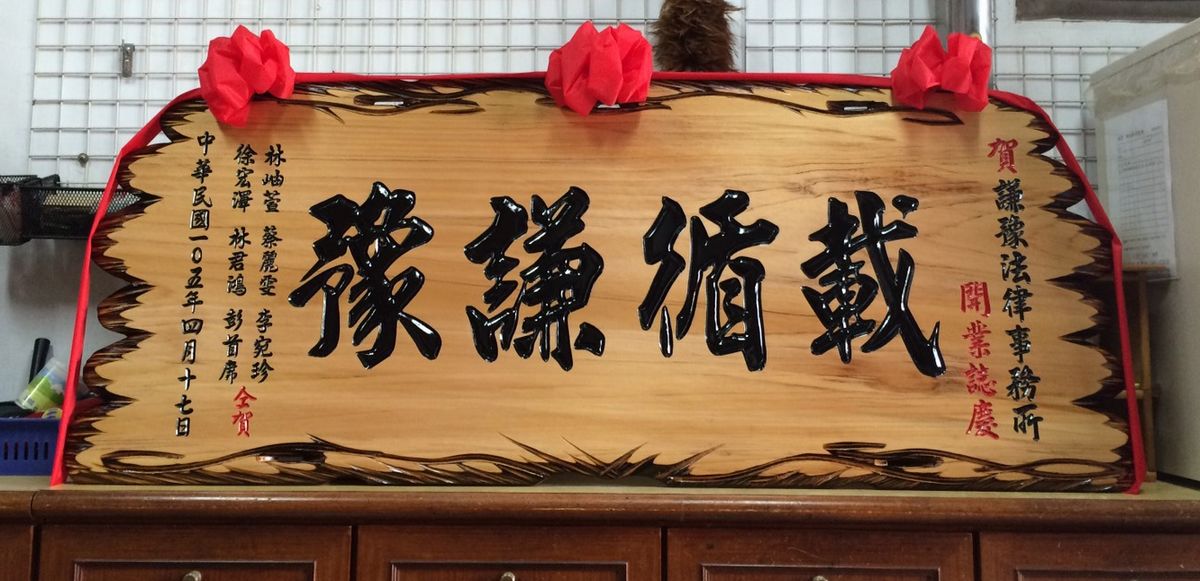 賀謙豫法律事務所
開業誌慶
載循謙豫
林岫萱 蔡麗雯 李宛珍
徐宏澤 林君鴻 彭首席 仝賀
中華民國一0五年四月十七日